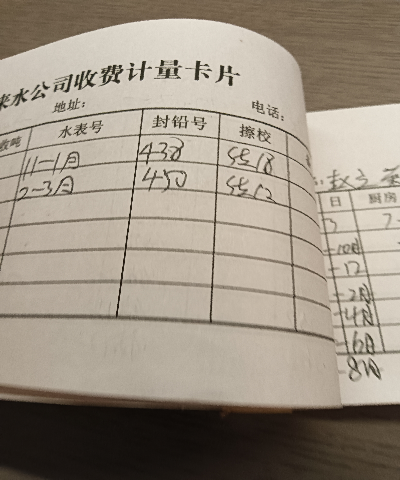 来水公司收费计量卡片
地址： 电话：
收吨 水表号 封铅号 擦校
11-1月 438 5518
2-3月 450 5512
日 厨房
-10月
-12
-2月
-4月
-6月
-8月